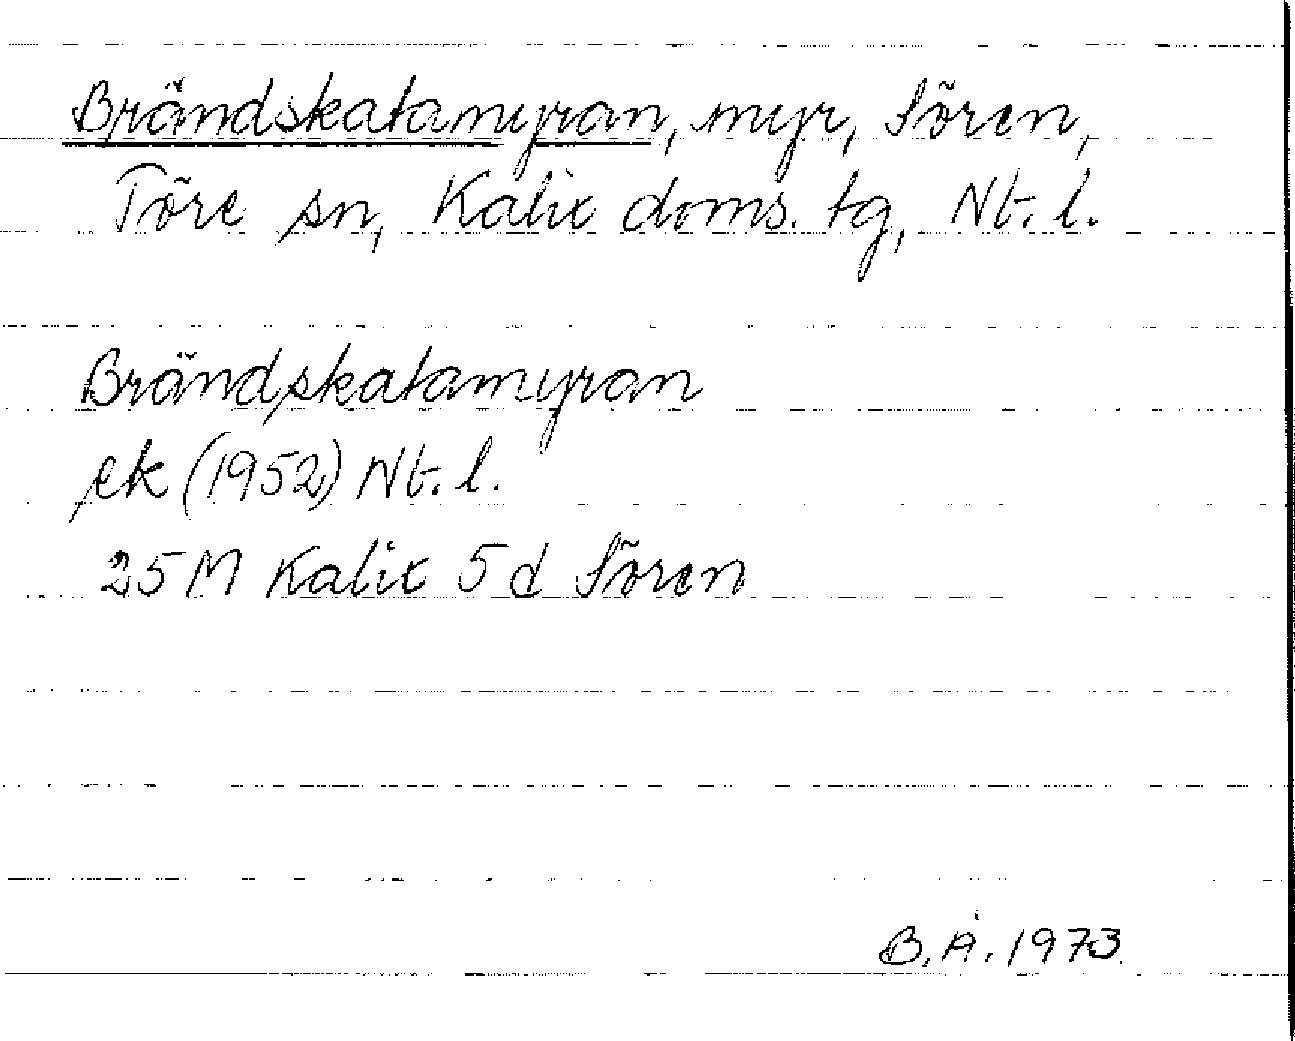 Brändskatamyran, myr, Sören,
Töre sn, Kalix doms. tg, Nt. l.
Brändskatamyran
ek (1952) Nt. l.
25 M Kalix 5 d Sören
B. Å. 1973